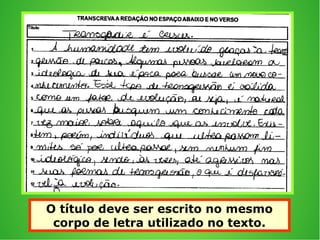 TRANSCREVA A REDAÇÃO NO ESPAÇO ABAIXO E NO VERSO
Título
Transgredir é crescer.
A humanidade tem evoluído graças à trans-
gressão de poucos. Algumas pessoas quebraram a
ideologia de sua época para buscar um novo co-
nhecimento. Este tipo de transgressão é válida
como um fator de evolução, ou seja, é natural
que as pessoas busquem um conhecimento cada
vez maior sobre aquilo que as envolve. Exis-
tem, porém, indivíduos que ultrapassam li-
mites só por ultrapassar, sem nenhum fim
ideológico, sendo, às vezes, até agressivos nas
suas formas de transgressão, o que é desfavorá-
vel à evolução.
O título deve ser escrito no mesmo
corpo de letra utilizado no texto.